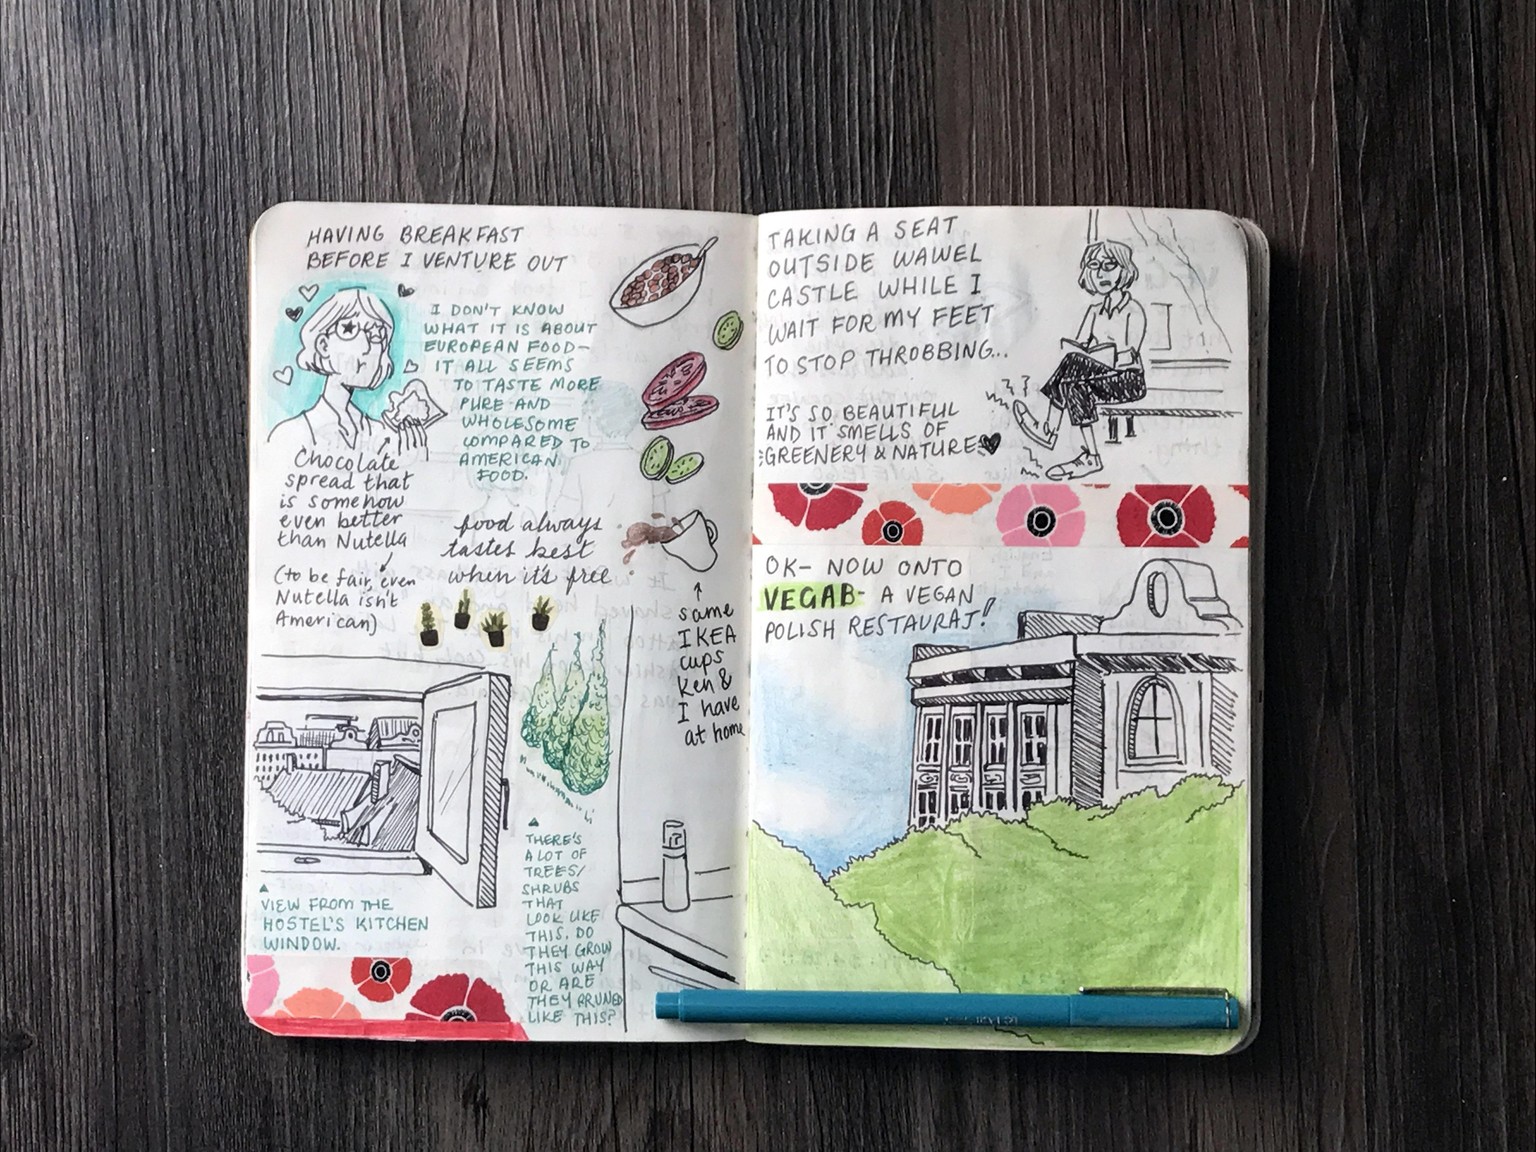 HAVING BREAKFAST
BEFORE I VENTURE OUT
I DON'T KNOW
WHAT IT IS ABOUT
EUROPEAN FOOD—
IT ALL SEEMS
TO TASTE MORE
PURE AND
WHOLESOME
COMPARED TO
AMERICAN
FOOD.
Chocolate
spread that
is somehow
even better
than Nutella
(to be fair, even
Nutella isn't
American)
food always
tastes best
when it's free
same
IKEA
cups
Ken &
I have
at home
VIEW FROM THE
HOSTEL'S KITCHEN
WINDOW.
THERE'S
A LOT OF
TREES/
SHRUBS
THAT
LOOK LIKE
THIS. DO
THEY GROW
THIS WAY
OR ARE
THEY PRUNED
LIKE THIS?
TAKING A SEAT
OUTSIDE WAWEL
CASTLE WHILE I
WAIT FOR MY FEET
TO STOP THROBBING...
IT'S SO BEAUTIFUL
AND IT SMELLS OF
GREENERY & NATURE
OK— NOW ONTO
VEGAB- A VEGAN
POLISH RESTAURAT!